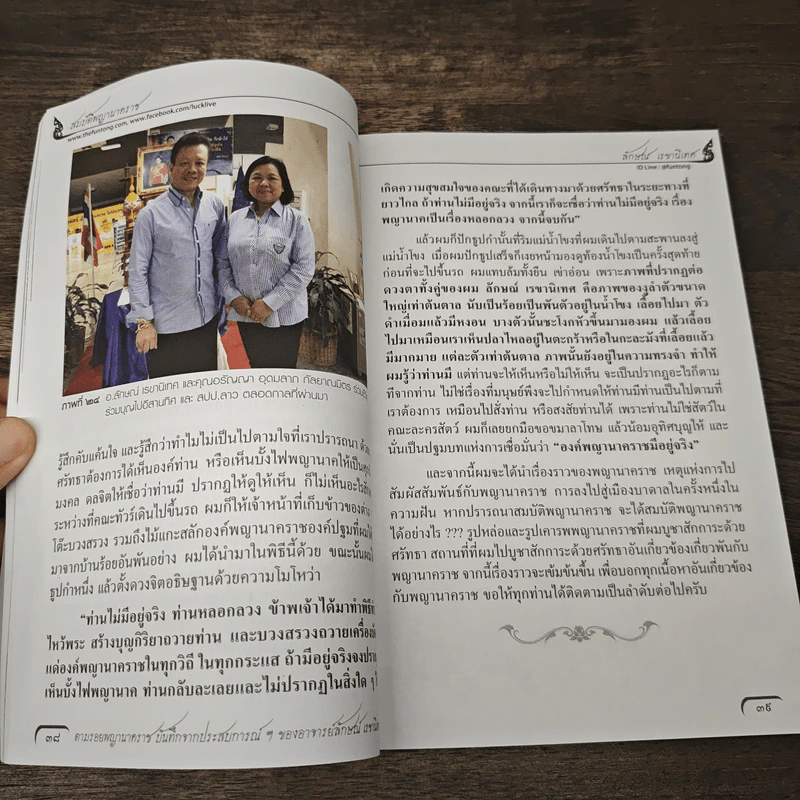 สมบัติพญานาคราช
www.thefuntong.com, www.facebook.com/lucklive
ภาพที่ ๒๔ อ.ลักษณ์ เรขานิเทศ และคุณอรัญญา อุดมลาภ กัลยาณมิตร ร่วม
ร่วมบุญไปอีสานทิศ และ สปป.ลาว ตลอดกาลที่ผ่านมา
รู้สึกคับแค้นใจ และรู้สึกว่าทำไมไม่เป็นไปตามใจที่เราปรารถนา ด้วย
ศรัทธาต้องการได้เห็นองค์ท่าน หรือเห็นบั้งไฟพญานาคให้เป็น
มงคล ดลจิตให้เชื่อว่าท่านมี ปรากฏให้ดูให้เห็น ก็ไม่เห็นอะไร
ระหว่างที่คณะทัวร์เดินไปขึ้นรถ ผมก็ให้เจ้าหน้าที่เก็บข้าวของต่าง
โต๊ะบวงสรวง รวมถึงไม้แกะสลักองค์พญานาคราชองค์ปฐมที่ผม
มาจากบ้านร้อยอันพันอย่าง ผมได้นำมาในพิธีนี้ด้วย ขณะนั้นผม
ธูปกำหนึ่ง แล้วตั้งดวงจิตอธิษฐานด้วยความโมโหว่า
“ท่านไม่มีอยู่จริง ท่านหลอกลวง ข้าพเจ้าได้มาทำพิธี
ไหว้พระ สร้างบุญกิริยาถวายท่าน และบวงสรวงถวายเครื่อง
แด่องค์พญานาคราชในทุกวิถี ในทุกกระแส ถ้ามีอยู่จริงจง
เห็นบั้งไฟพญานาค ท่านกลับละเลยและไม่ปรากฏในสิ่งใด ๆ
๓๘ ตามรอยพญานาคราช บันทึกจากประสบการณ์ ฯ ของอาจารย์ลักษณ์
ลักษณ์ เรขานิเทศ
ID Line : @funtong
เกิดความสุขสมใจของคณะที่ได้เดินทางมาด้วยศรัทธาในระยะทางที่
ยาวไกล ถ้าท่านไม่มีอยู่จริง จากนี้เราก็จะเชื่อว่าท่านไม่มีอยู่จริง เรื่อง
พญานาคเป็นเรื่องหลอกลวง จากนี้จบกัน”
แล้วผมก็ปักธูปกำนั้นที่ริมแม่น้ำโขงที่ผมเดินไปตามสะพานลงสู่
แม่น้ำโขง เมื่อผมปักธูปเสร็จก็เงยหน้ามองดูท้องน้ำโขงเป็นครั้งสุดท้าย
ก่อนที่จะไปขึ้นรถ ผมแทบล้มทั้งยืน เข่าอ่อน เพราะภาพที่ปรากฏต่อ
ดวงตาทั้งคู่ของผม ลักษณ์ เรขานิเทศ คือภาพของงูลำตัวขนาด
ใหญ่เท่าต้นตาล นับเป็นร้อยเป็นพันตัวอยู่ในน้ำโขง เลื้อยไปมา ตัว
ดำเมื่อมแล้วมีหงอน บางตัวนั้นชะโงกหัวขึ้นมามองผม แล้วเลื้อย
ไปมาเหมือนเราเห็นปลาไหลอยู่ในตะกร้าหรือในกะละมังที่เลื้อยแล้ว
มีมากมาย แต่ละตัวเท่าต้นตาล ภาพนั้นยังอยู่ในความทรงจำ ทำให้
ผมรู้ว่าท่านมี แต่ท่านจะให้เห็นหรือไม่ให้เห็น จะเป็นปรากฏอะไรก็ตาม
ที่จากท่าน ไม่ใช่เรื่องที่มนุษย์พึงจะไปกำหนดให้ท่านมีท่านเป็นไปตามที่
เราต้องการ เหมือนไปสั่งท่าน หรือสงสัยท่านได้ เพราะท่านไม่ใช่สัตว์ใน
คณะละครสัตว์ ผมก็เลยยกมือขอขมาลาโทษ แล้วน้อมอุทิศบุญให้ และ
นั่นเป็นปฐมบทแห่งการเชื่อมั่นว่า “องค์พญานาคราชมีอยู่จริง”
และจากนี้ผมจะได้นำเรื่องราวของพญานาคราช เหตุแห่งการไป
สัมผัสสัมพันธ์กับพญานาคราช การลงไปสู่เมืองบาดาลในครั้งหนึ่งใน
ความฝัน หากปรารถนาสมบัติพญานาคราช จะได้สมบัติพญานาคราช
ได้อย่างไร ??? รูปหล่อและรูปเคารพพญานาคราชที่ผมบูชาสักการะด้วย
ศรัทธา สถานที่ที่ผมไปบูชาสักการะด้วยศรัทธาอันเกี่ยวข้องเกี่ยวพันกับ
พญานาคราช จากนี้เรื่องราวจะเข้มข้นขึ้น เพื่อบอกทุกเนื้อหาอันเกี่ยวข้อง
กับพญานาคราช ขอให้ทุกท่านได้ติดตามเป็นลำดับต่อไปครับ
๓๙